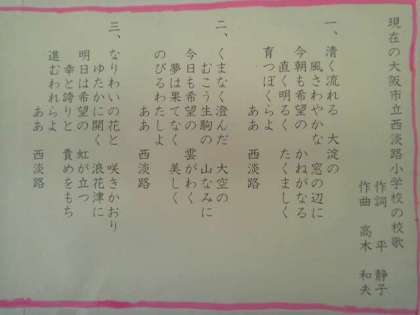 現在の大阪市立西淡路小学校の校歌
作詞 平 静子
作曲 高木 和夫
一、清く流れる 大淀の
風さわやかな 窓の辺に
今朝も希望の かねがなる
直く明るく たくましく
育つぼくらよ
ああ 西淡路
二、くまなく澄んだ 大空の
むこう生駒の 山なみに
今日も希望の 雲がわく
夢は果てなく 美しく
のびるわたしよ
ああ 西淡路
三、なりわいの花と 咲きかおり
ゆたかに開く 浪花津に
明日は希望の 虹が立つ
幸と誇りと 責めをもち
進むわれらよ
ああ 西淡路